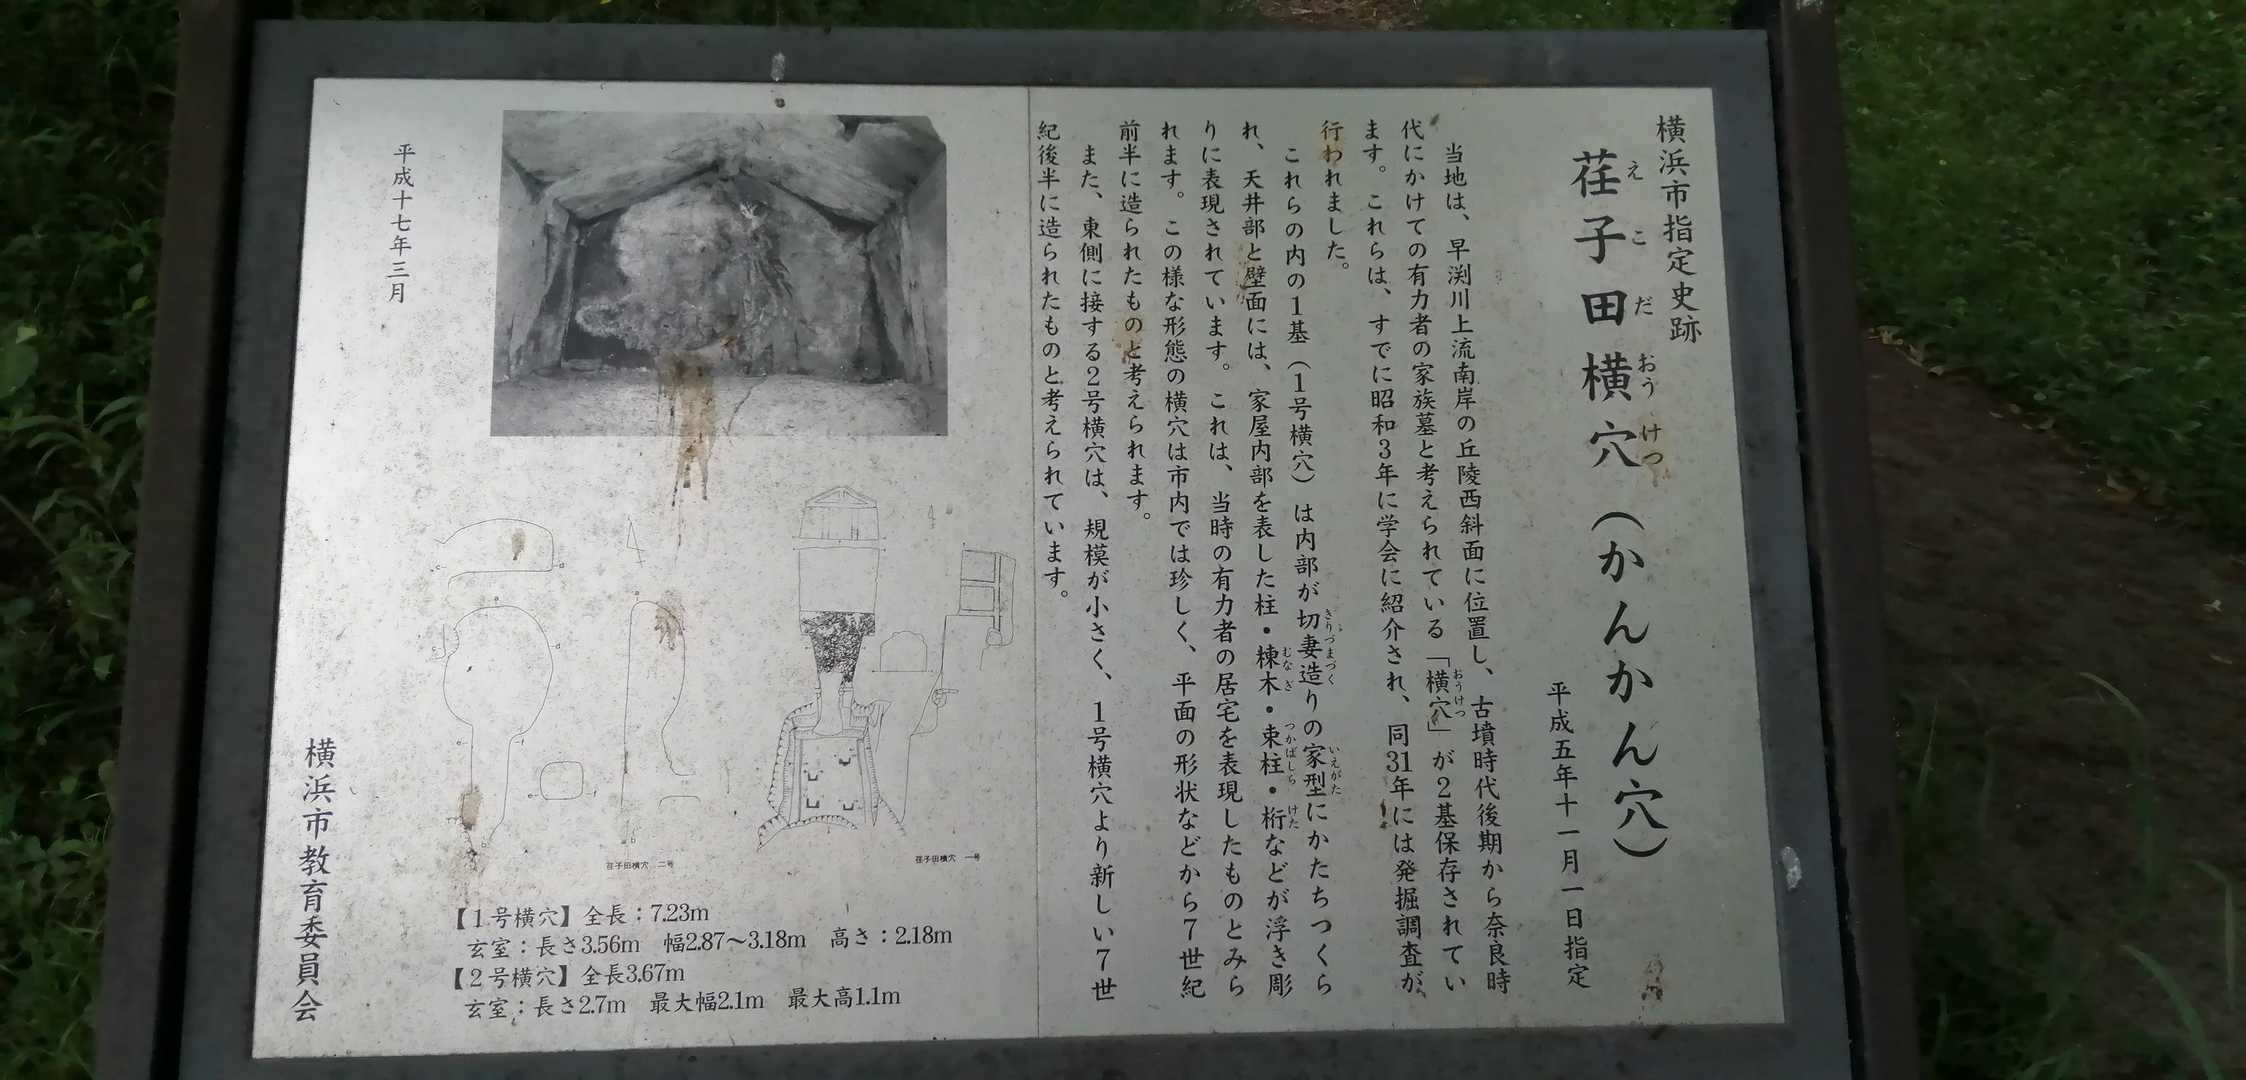 横浜市指定史跡
荏子田横穴（かんかん穴）
えこだおうけつ
平成五年十一月一日指定
当地は、早渕川上流南岸の丘陵西斜面に位置し、古墳時代後期から奈良時
代にかけての有力者の家族墓と考えられている「横穴」が２基保存されてい
おうけつ
ます。これらは、すでに昭和３年に学会に紹介され、同31年には発掘調査が
行われました。
これらの内の１基（１号横穴）は内部が切妻造りの家型にかたちつくら
きりづまづく
いえがた
れ、天井部と壁面には、家屋内部を表した柱・棟木・束柱・桁などが浮き彫
むなぎ
つかばしら
けた
りに表現されています。これは、当時の有力者の居宅を表現したものとみら
れます。この様な形態の横穴は市内では珍しく、平面の形状などから７世紀
前半に造られたものと考えられます。
また、東側に接する２号横穴は、規模が小さく、１号横穴より新しい７世
紀後半に造られたものと考えられています。
平成十七年三月
横浜市教育委員会
荏子田横穴　二号
荏子田横穴　一号
【１号横穴】全長：7.23m
玄室：長さ3.56m　幅2.87～3.18m　高さ：2.18m
【２号横穴】全長3.67m
玄室：長さ2.7m　最大幅2.1m　最大高1.1m